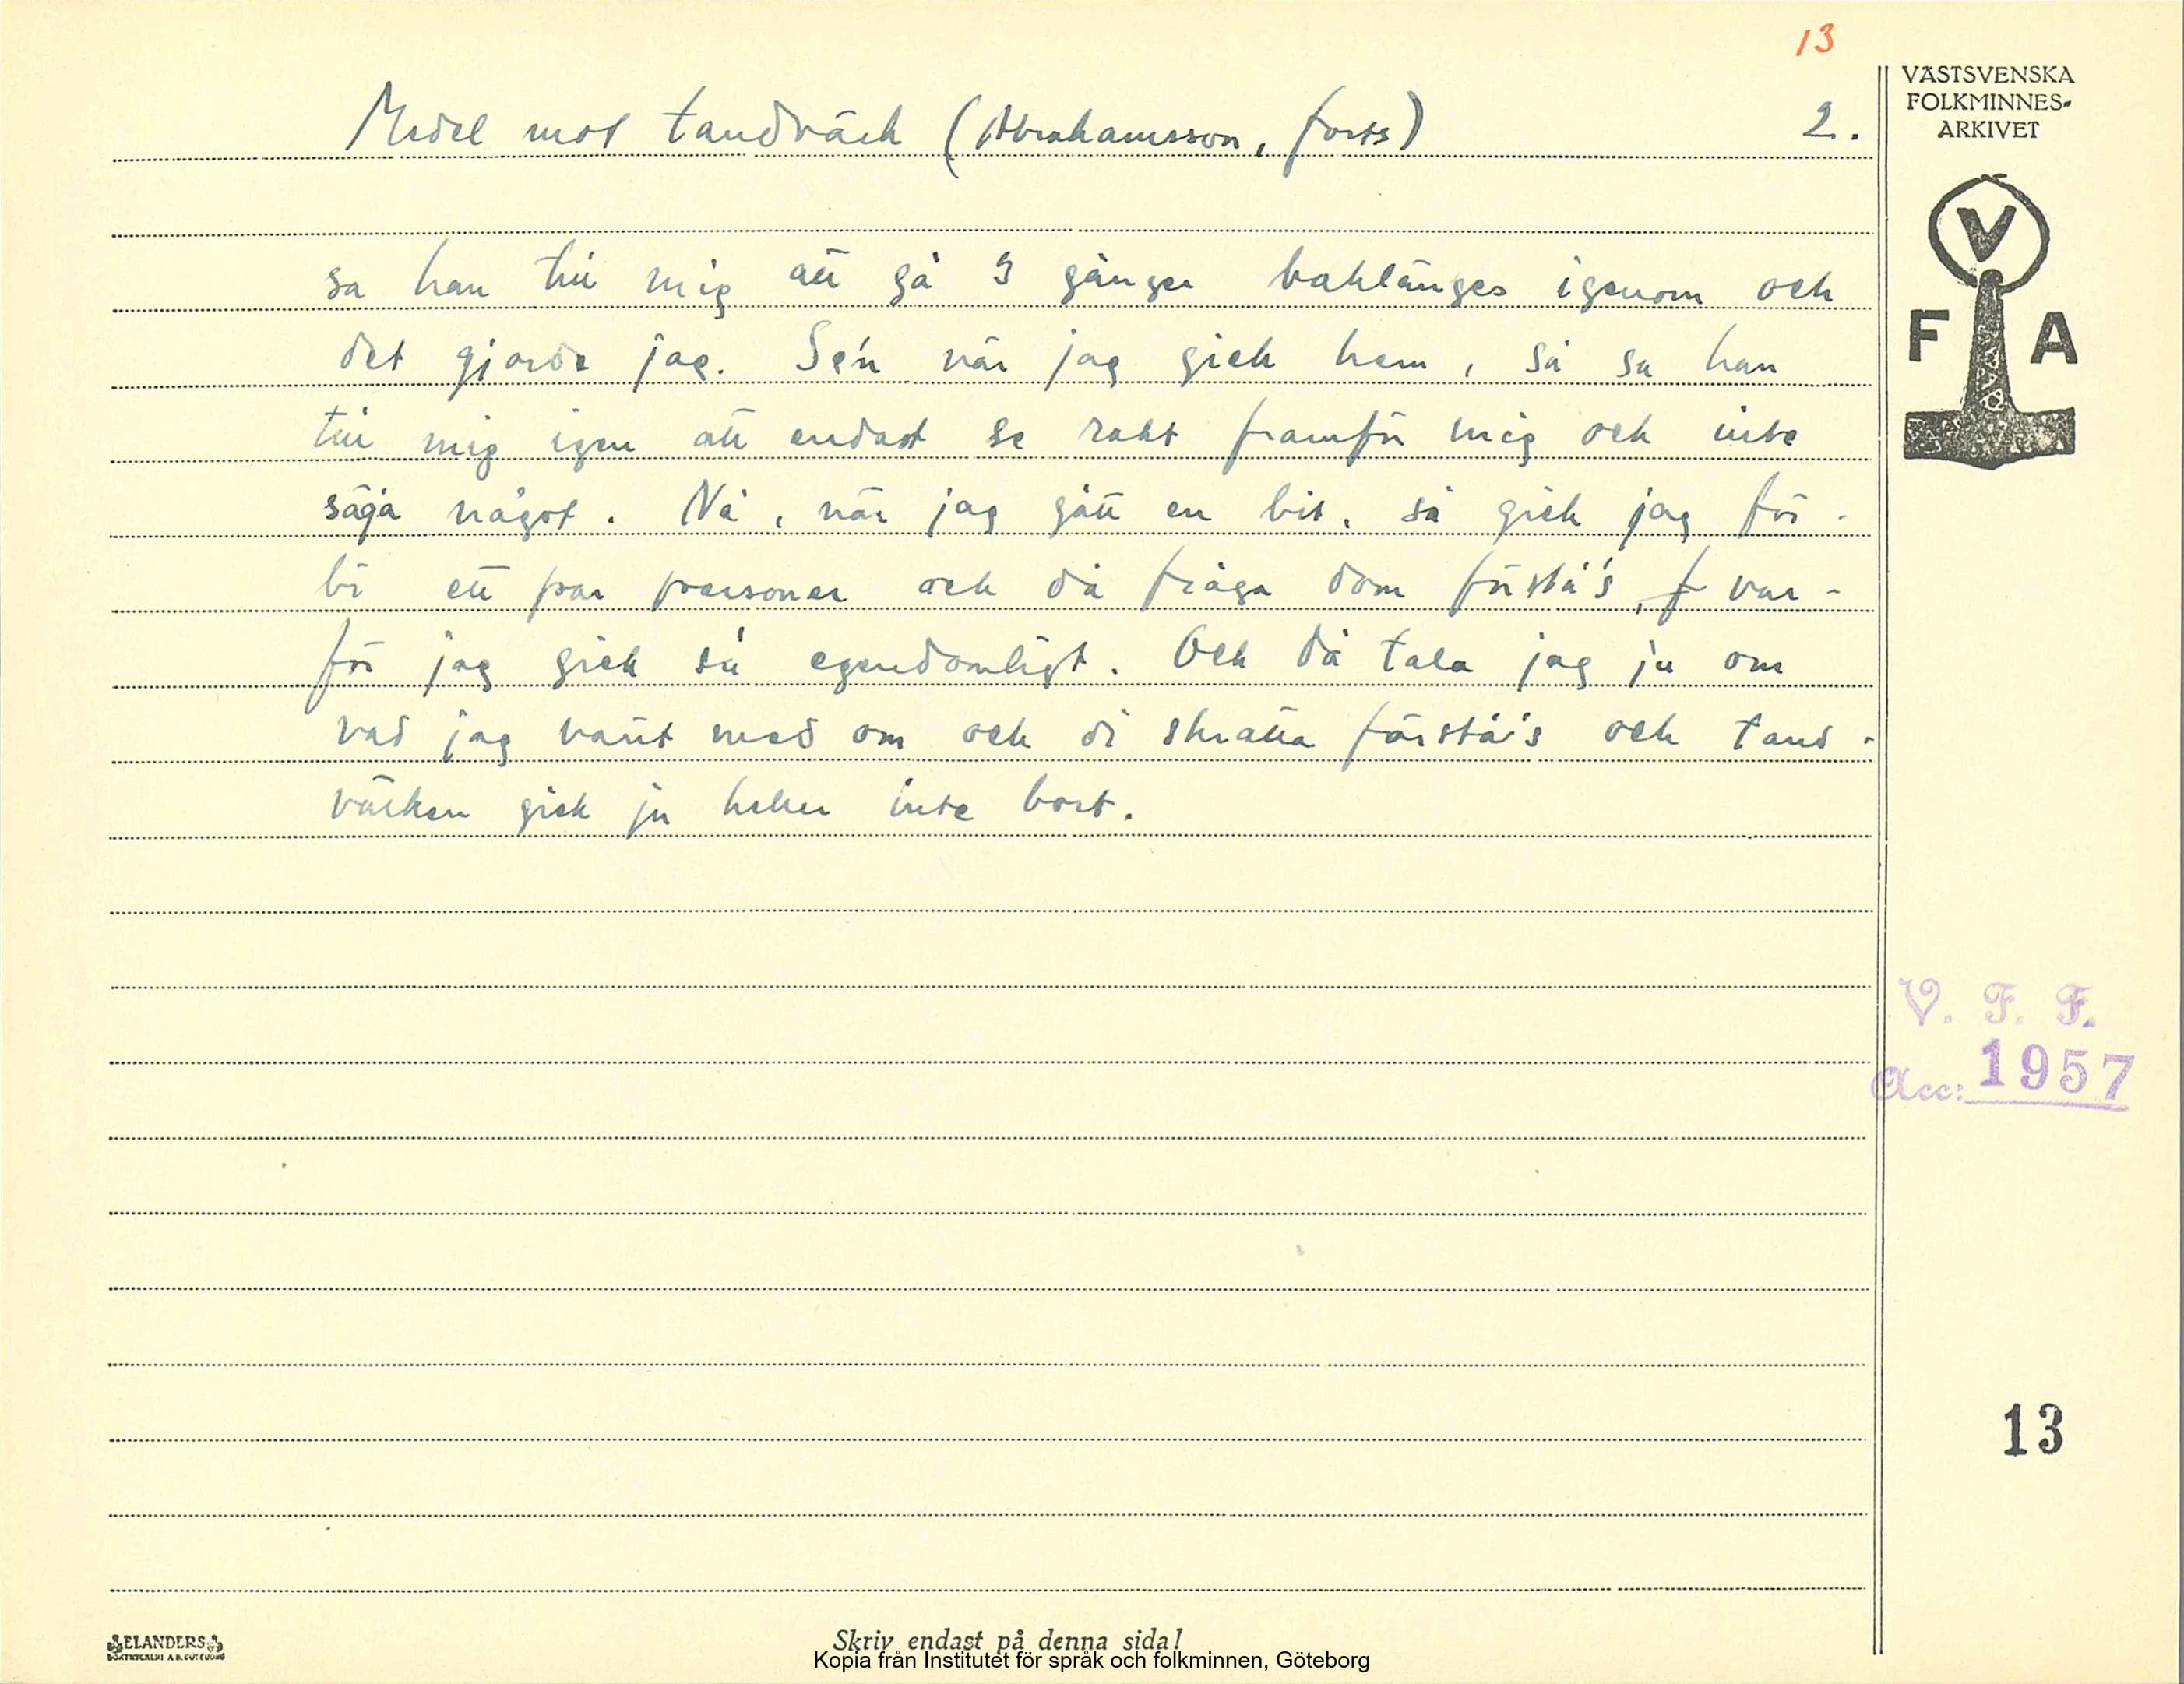 13
VÄSTSVENSKA
FOLKMINNES-
ARKIVET
Medel mot tandvärk (Abrahamsson, forts) 2.
V
F A
sa han till mig att gå 3 gånger baklänges igenom och
det gjorde jag. Se'n när jag gick hem, så sa han
till mig igen att endast se rakt framför mig och inte
säga något. Nå, när jag gått en bit, så gick jag för-
bi ett par personer och då fråga dom förstå's, f var-
för jag gick så egendomligt. Och då tala jag ju om
vad jag varit med om och di skratta förstå's och tand-
värken gick ju heller inte bort.
V. F. F.
Acc: 1957
13
ELANDERS
BOKTRYCKERI A.B. GÖTEBORG
Skriv endast på denna sida!
Kopia från Institutet för språk och folkminnen, Göteborg